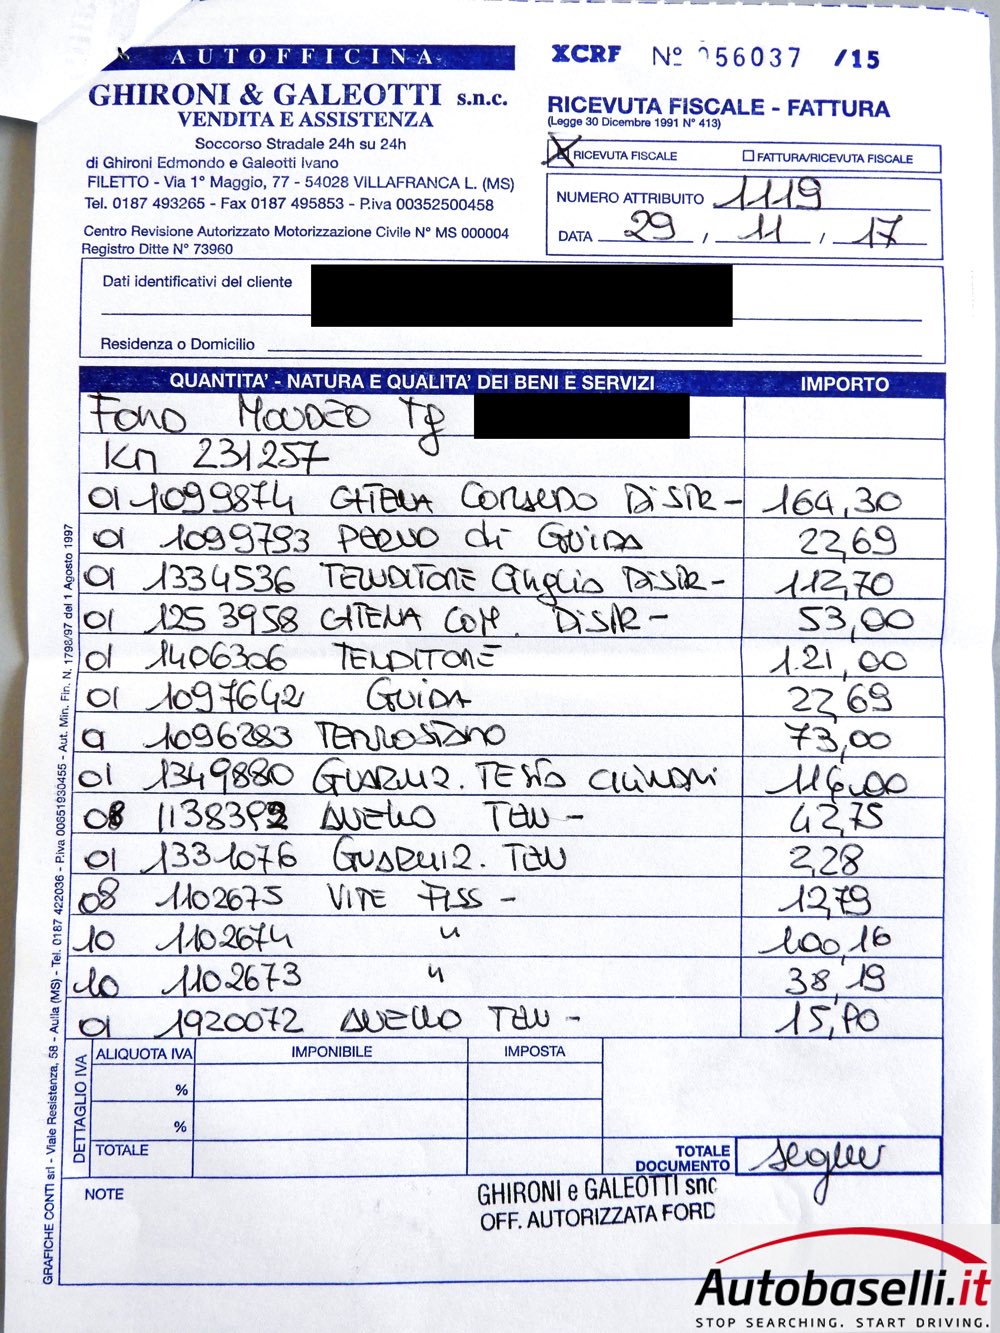 AUTOFFICINA
GHIRONI & GALEOTTI s.n.c.
VENDITA E ASSISTENZA
Soccorso Stradale 24h su 24h
di Ghironi Edmondo e Galeotti Ivano
FILETTO - Via 1° Maggio, 77 - 54028 VILLAFRANCA L. (MS)
Tel. 0187 493265 - Fax 0187 495853 - P.iva 00352500458
Centro Revisione Autorizzato Motorizzazione Civile N° MS 000004
Registro Ditte N° 73960
XCRF Nº 056037 /15
RICEVUTA FISCALE - FATTURA
(Legge 30 Dicembre 1991 N° 413)
X RICEVUTA FISCALE ☐ FATTURA/RICEVUTA FISCALE
NUMERO ATTRIBUITO 1119
DATA 29 / 11 / 17
Dati identificativi del cliente
Residenza o Domicilio
QUANTITA' - NATURA E QUALITA' DEI BENI E SERVIZI IMPORTO
FORD MONDEO Tg
Km 231257
01 1099874 CATENA COMANDO DISTR- 164,30
01 1099793 PERNO di GUIDA 22,69
01 1334536 TENDITORE Cinghia DISTR- 112,70
01 1253958 CATENA COM. DISTR- 53,00
01 1406306 TENDITORE 121,00
01 1097642 GUIDA 22,69
01 1096283 TERMOSTATO 73,00
01 1349880 GUARNIZ. TESTA CILINDRI 116,00
08 1138392 ANELLO TEN- 42,75
01 1331076 GUARNIZ. TEN 2,28
08 1102675 VITE FISS- 12,79
10 1102674 " 100,16
10 1102673 " 38,19
01 1920072 ANELLO TEN- 15,70
DETTAGLIO IVA
ALIQUOTA IVA IMPONIBILE IMPOSTA
%
%
TOTALE
TOTALE DOCUMENTO segue
NOTE
GHIRONI e GALEOTTI snc
OFF. AUTORIZZATA FORD
GRAFICHE CONTI srl - Viale Resistenza, 58 - Aulla (MS) - Tel. 0187 422036 - P.iva 00651930455 - Aut. Min. Fin. N. 1798/97 del 1 Agosto 1997
Autobaselli.it
STOP SEARCHING. START DRIVING.